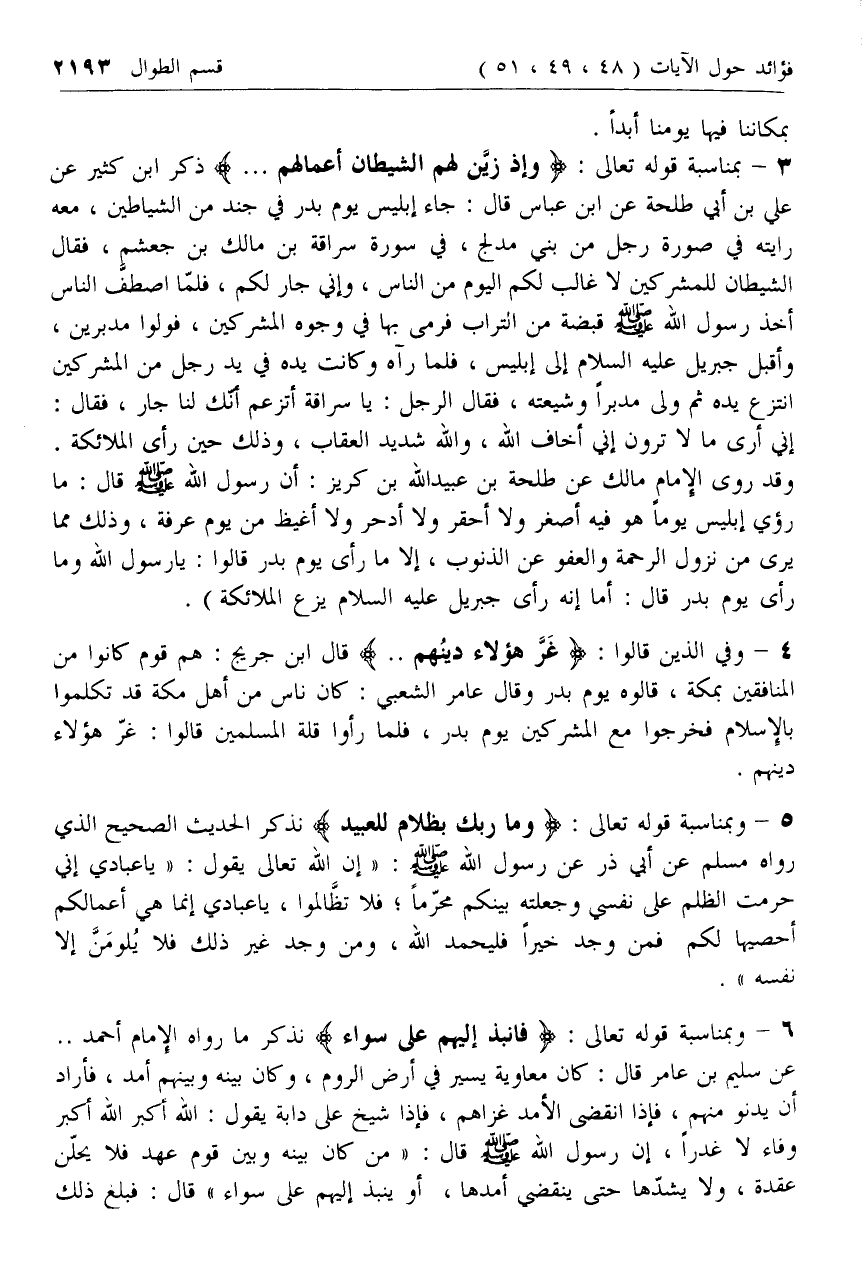 فوائد حول الآيات ( ٤٨ ، ٤٩ ، ٥١ ) قسم الطوال ٢١٩٣
بمكاننا فيها يومنا أبداً .
٣ – بمناسبة قوله تعالى : ﴿ وإذ زيَّن لهم الشيطان أعمالهم ... ﴾ ذكر ابن كثير عن
علي بن أبي طلحة عن ابن عباس قال : جاء إبليس يوم بدر في جند من الشياطين ، معه
رايته في صورة رجل من بني مدلج ، في سورة سراقة بن مالك بن جعشم ، فقال
الشيطان للمشركين لا غالب لكم اليوم من الناس ، وإني جار لكم ، فلمّا اصطفَّ الناس
أخذ رسول الله ﷺ قبضة من التراب فرمى بها في وجوه المشركين ، فولوا مدبرين ،
وأقبل جبريل عليه السلام إلى إبليس ، فلما رآه وكانت يده في يد رجل من المشركين
انتزع يده ثم ولى مدبراً وشيعته ، فقال الرجل : يا سراقة أتزعم أنّك لنا جار ، فقال :
إني أرى ما لا ترون إني أخاف الله ، والله شديد العقاب ، وذلك حين رأى الملائكة .
وقد روى الإمام مالك عن طلحة بن عبيدالله بن كريز : أن رسول الله ﷺ قال : ما
رؤي إبليس يوماً هو فيه أصغر ولا أحقر ولا أدحر ولا أغيظ من يوم عرفة ، وذلك مما
يرى من نزول الرحمة والعفو عن الذنوب ، إلا ما رأى يوم بدر قالوا : يارسول الله وما
رأى يوم بدر قال : أما إنه رأى جبريل عليه السلام يزع الملائكة ) .
٤ – وفي الذين قالوا : ﴿ غَرَّ هؤلاء دينُهم .. ﴾ قال ابن جريج : هم قوم كانوا من
المنافقين بمكة ، قالوه يوم بدر وقال عامر الشعبي : كان ناس من أهل مكة قد تكلموا
بالإسلام فخرجوا مع المشركين يوم بدر ، فلما رأوا قلة المسلمين قالوا : غرّ هؤلاء
دينهم .
٥ – وبمناسبة قوله تعالى : ﴿ وما ربك بظلام للعبيد ﴾ نذكر الحديث الصحيح الذي
رواه مسلم عن أبي ذر عن رسول الله ﷺ : « إن الله تعالى يقول : « ياعبادي إني
حرمت الظلم على نفسي وجعلته بينكم محرّماً ؛ فلا تظَّالموا ، ياعبادي إنما هي أعمالكم
أحصيها لكم فمن وجد خيراً فليحمد الله ، ومن وجد غير ذلك فلا يُلومَنَّ إلا
نفسه » .
٦ – وبمناسبة قوله تعالى : ﴿ فانبذ إليهم على سواء ﴾ نذكر ما رواه الإمام أحمد ..
عن سليم بن عامر قال : كان معاوية يسير في أرض الروم ، وكان بينه وبينهم أمد ، فأراد
أن يدنو منهم ، فإذا انقضى الأمد غزاهم ، فإذا شيخ على دابة يقول : الله أكبر الله أكبر
وفاء لا غدراً ، إن رسول الله ﷺ قال : « من كان بينه وبين قوم عهد فلا يحلّن
عقدة ، ولا يشدّها حتى ينقضي أمدها ، أو ينبذ إليهم على سواء » قال : فبلغ ذلك